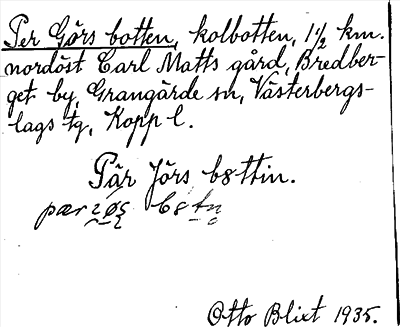 Per Görs botten, kolbotten, 1½ km.
nordöst Carl Matts gård, Bredber-
get by, Grangärde sn, Västerbergs-
lags tg, Kopp l.
Pär Jörs b8ttin.
Otto Blixt 1935.